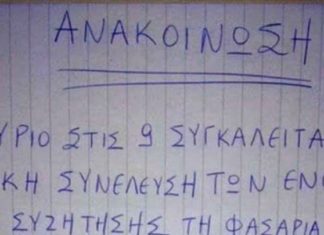 ΑΝΑΚΟΙΝΩΣΗ
ΥΡΙΟ ΣΤΙΣ 9 ΣΥΓΚΑΛΕΙΤΑ
ΚΗ ΣΥΝΕΛΕΥΣΗ ΤΩΝ ΕΝΟ
ΣΥΖΗΤΗΣΗΣ ΤΗ ΦΑΣΑΡΙΑ